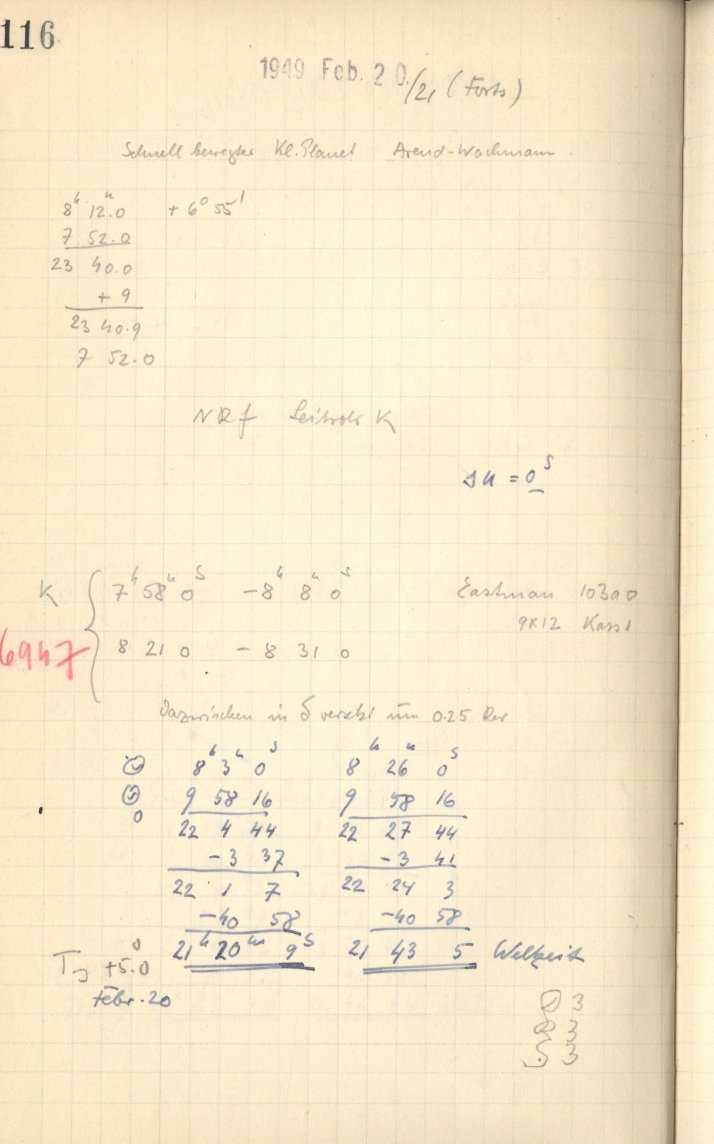 116
1949 Feb. 20./21 (Forts)
Schnell bewegter Kl. Planet Arend-Wachmann
8ʰ 12.0 + 6° 55'
7 52.0
23 40.0
+ 9
23 40.9
7 52.0
NRf Leitrohr K
Δu = 0ˢ
K 7ʰ 58ᵐ 0ˢ -8ʰ 8ᵐ 0ˢ Eastman 103a0
9x12 Kass1
6947 8 21 0 - 8 31 0
Dazwischen in δ versetzt um 0.25 Rev
8ʰ 3ᵐ 0ˢ 8ʰ 26ᵐ 0ˢ
9 58 16 9 58 16
0 22 4 44 22 27 44
-3 37 -3 41
22 1 7 22 24 3
-40 58 -40 58
+5.0° 21ʰ 20ᵐ 9ˢ 21 43 5 Weltzeit
Febr. 20
3
3
S 3